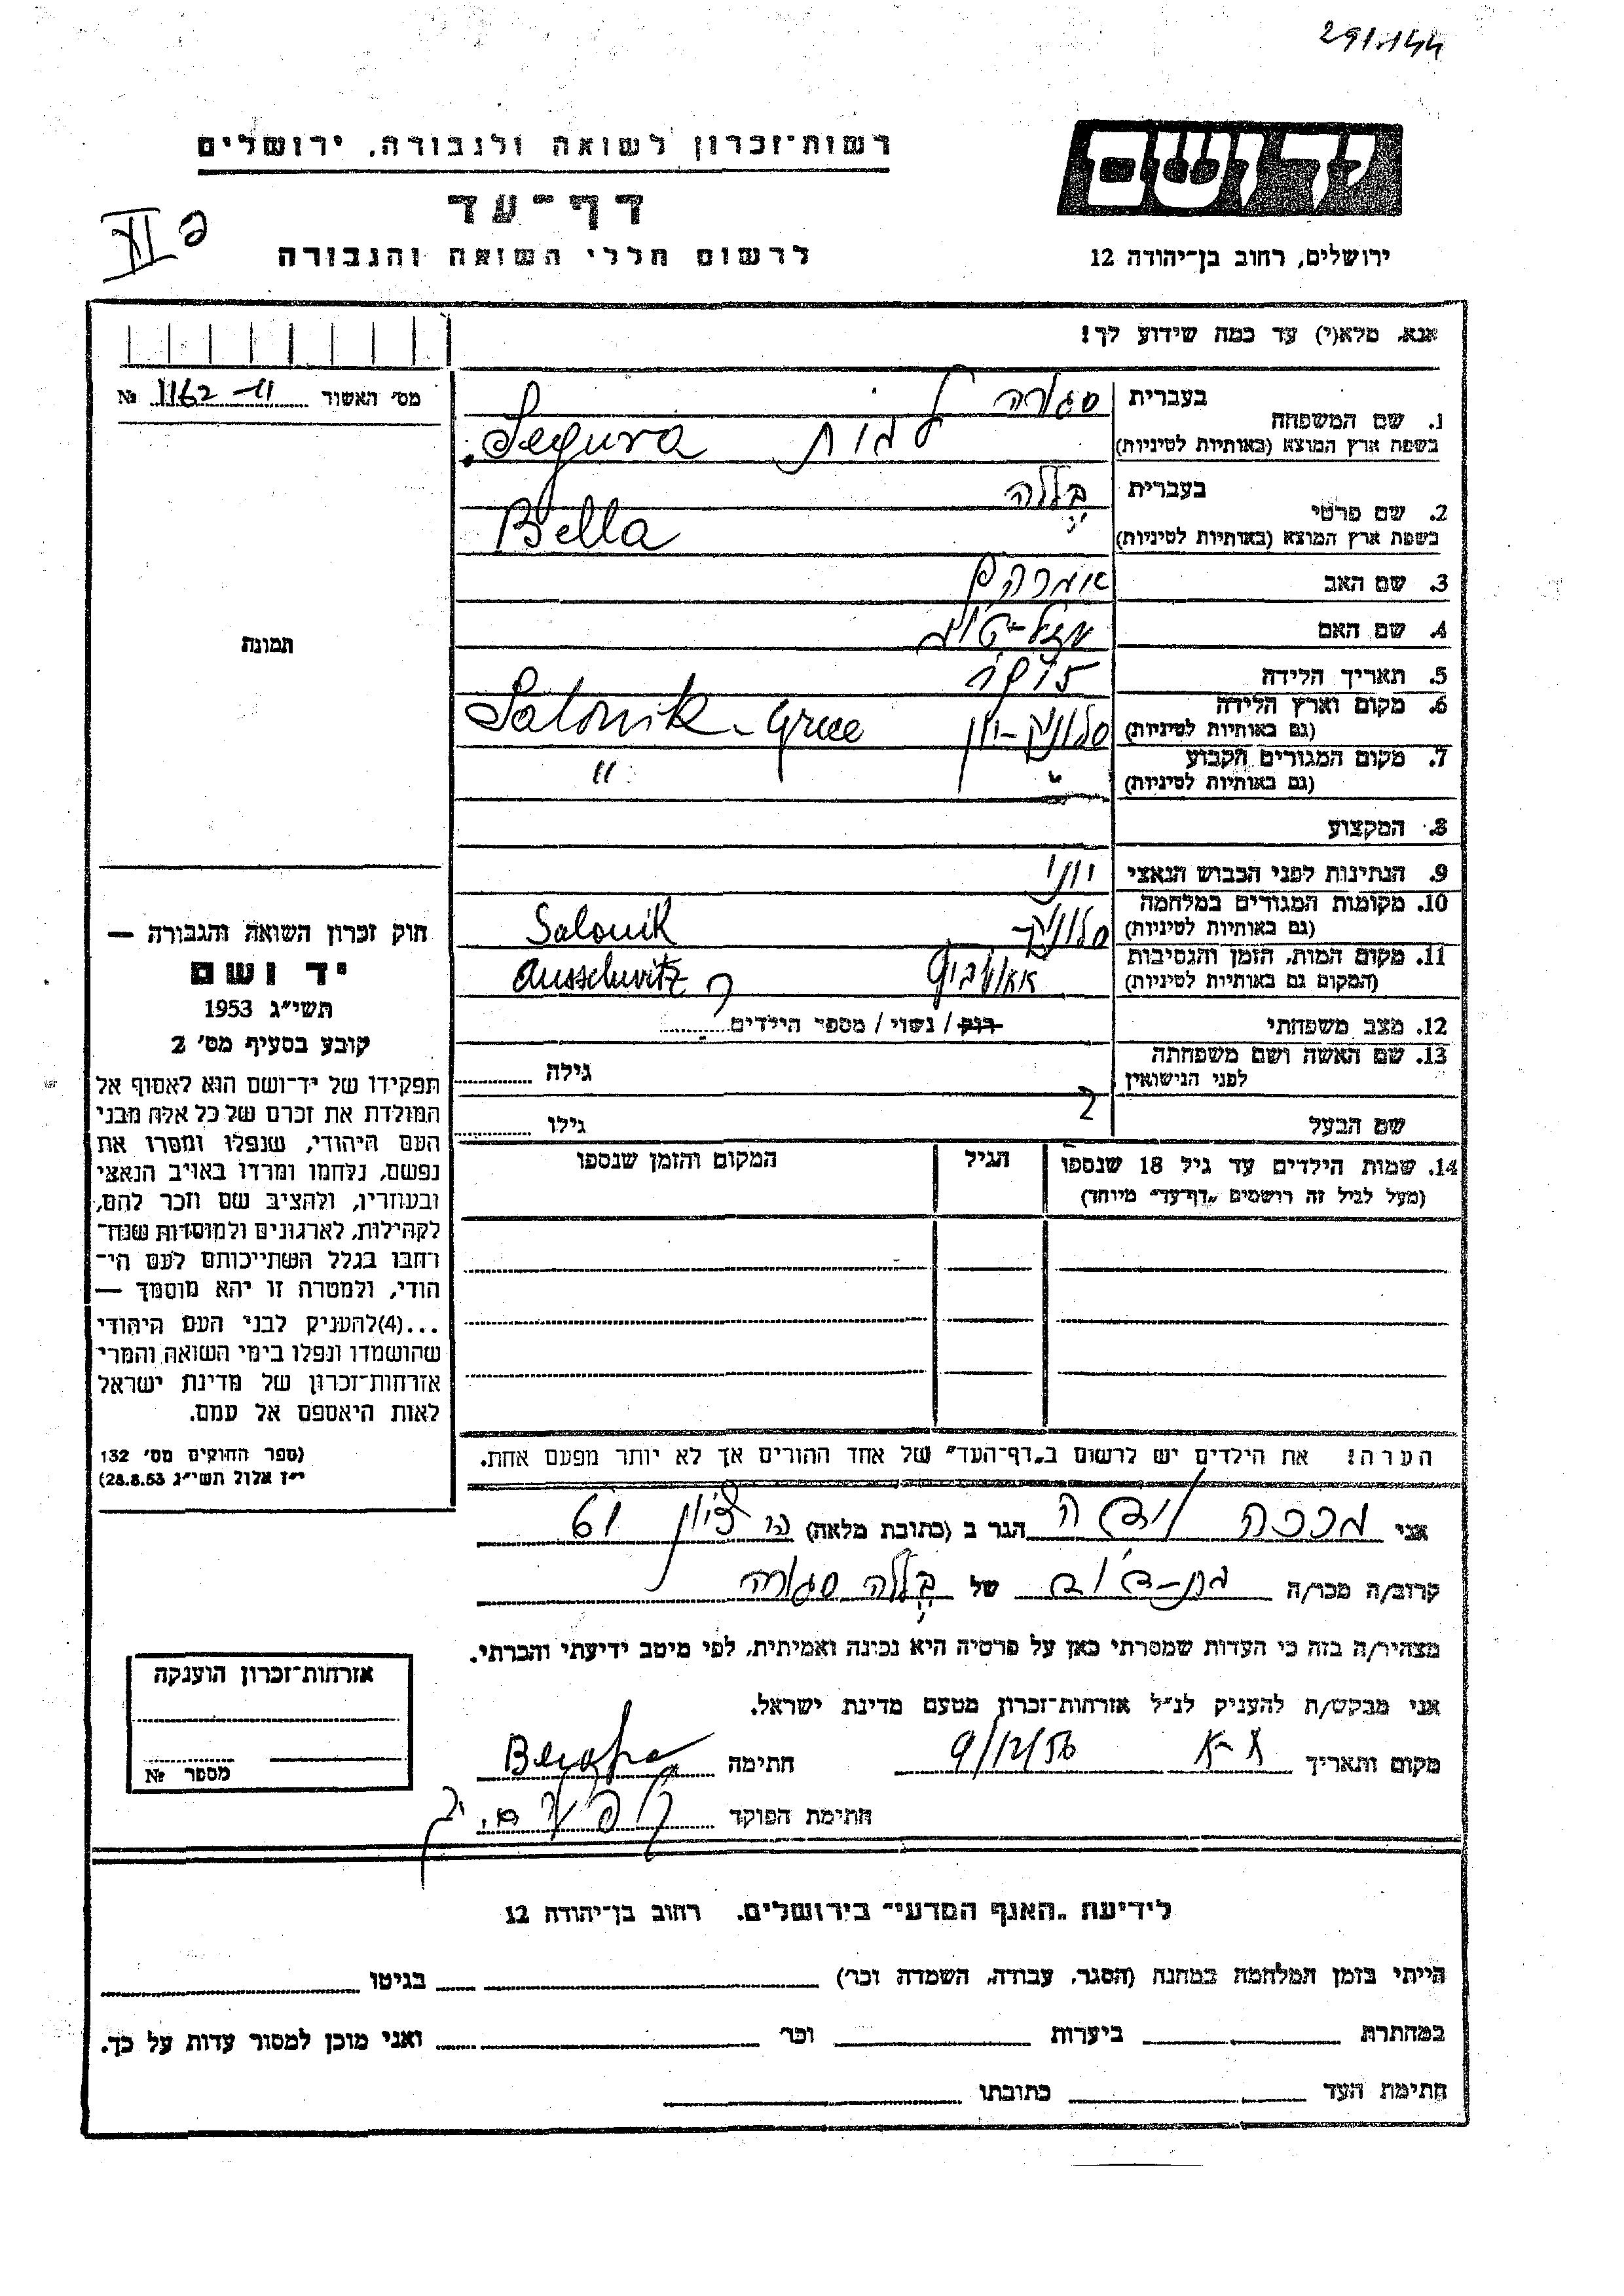 291.144
רשות־זכרון לשואה ולגבורה, ירושלים
יד ושם
דף־עד
לרשום חללי השואה והגבורה
ירושלים, רחוב בן־יהודה 12
אנא, מלא(י) עד כמה שידוע לך!
מס׳ האשור 11-1162 №
1. שם המשפחה
בעברית סגורה
בשפת ארץ המוצא (באותיות לטיניות) Segura
2. שם פרטי
בעברית בללה
בשפת ארץ המוצא (באותיות לטיניות) Bella
3. שם האב אברהם
4. שם האם מזל-טוב
תמונה
5. תאריך הלידה
6. מקום וארץ הלידה סלוניק-יון Salonik - Grece
(גם באותיות לטיניות)
7. מקום המגורים הקבוע " "
(גם באותיות לטיניות)
8. המקצוע
9. הנתינות לפני הכבוש הנאצי יוני
10. מקומות המגורים במלחמה סלוניק Salonik
(גם באותיות לטיניות)
11. מקום המות, הזמן והנסיבות אאושביץ Ausschwitz
(המקום גם באותיות לטיניות)
12. מצב משפחתי רווק / נשוי / מספר הילדים
13. שם האשה ושם משפחתה גילה
לפני הנישואין
שם הבעל גילו
14. שמות הילדים עד גיל 18 שנספו הגיל המקום והזמן שנספו
(מעל לגיל זה רושמים „דף־עד״ מיוחד)
חוק זכרון השואה והגבורה —
יד ושם
תשי״ג 1953
קובע בסעיף מס׳ 2
תפקידו של יד־ושם הוא לאסוף אל
המולדת את זכרם של כל אלה מבני
העם היהודי, שנפלו ומסרו את
נפשם, נלחמו ומרדו באויב הנאצי
ובעוזריו, ולהציב שם וזכר להם,
לקהילות, לארגונים ולמוסדות שנח־
רחבו בגלל השתייכותם לעם הי־
הודי, ולמטרה זו יהא מוסמך —
...(4)להעניק לבני העם היהודי
שהושמדו ונפלו בימי השואה והמרי
אזרחות־זכרון של מדינת ישראל
לאות היאספם אל עמם.
(ספר החוקים מס׳ 132
י״ז אלול תשי״ג 28.8.53)
הערה: את הילדים יש לרשום ב„דף־העד״ של אחד ההורים אך לא יותר מפעם אחת.
אני הגר ב (כתובת מלאה) 61
קרוב/ה מכר/ה בת-דוד של בללה סגורה
מצהיר/ה בזה כי העדות שמסרתי כאן על פרטיה היא נכונה ואמיתית, לפי מיטב ידיעתי והכרתי.
אני מבקש/ת להעניק לנ״ל אזרחות־זכרון מטעם מדינת ישראל.
מקום ותאריך 9/12/56 חתימה
חתימת הפוקד
אזרחות־זכרון הוענקה
מספר №
לידיעת „האגף המדעי״ בירושלים, רחוב בן־יהודה 12
הייתי בזמן המלחמה במחנה (הסגר, עבודה, השמדה וכר׳) בגיטו
במחתרת ביערות וכר׳ ואני מוכן למסור עדות על כך.
חתימת העד כתובתו